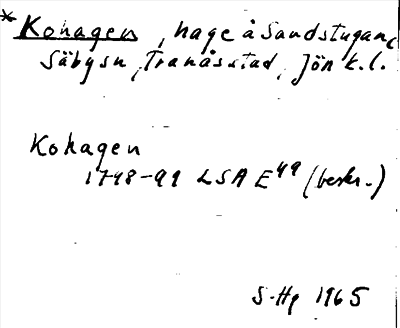 *Kohagen, hage å Sandstugan,
Säbysn, Tranås stad, Jön k.l.
Kohagen
1748-91 LSA E49 (beskr.)
S-Hg 1965